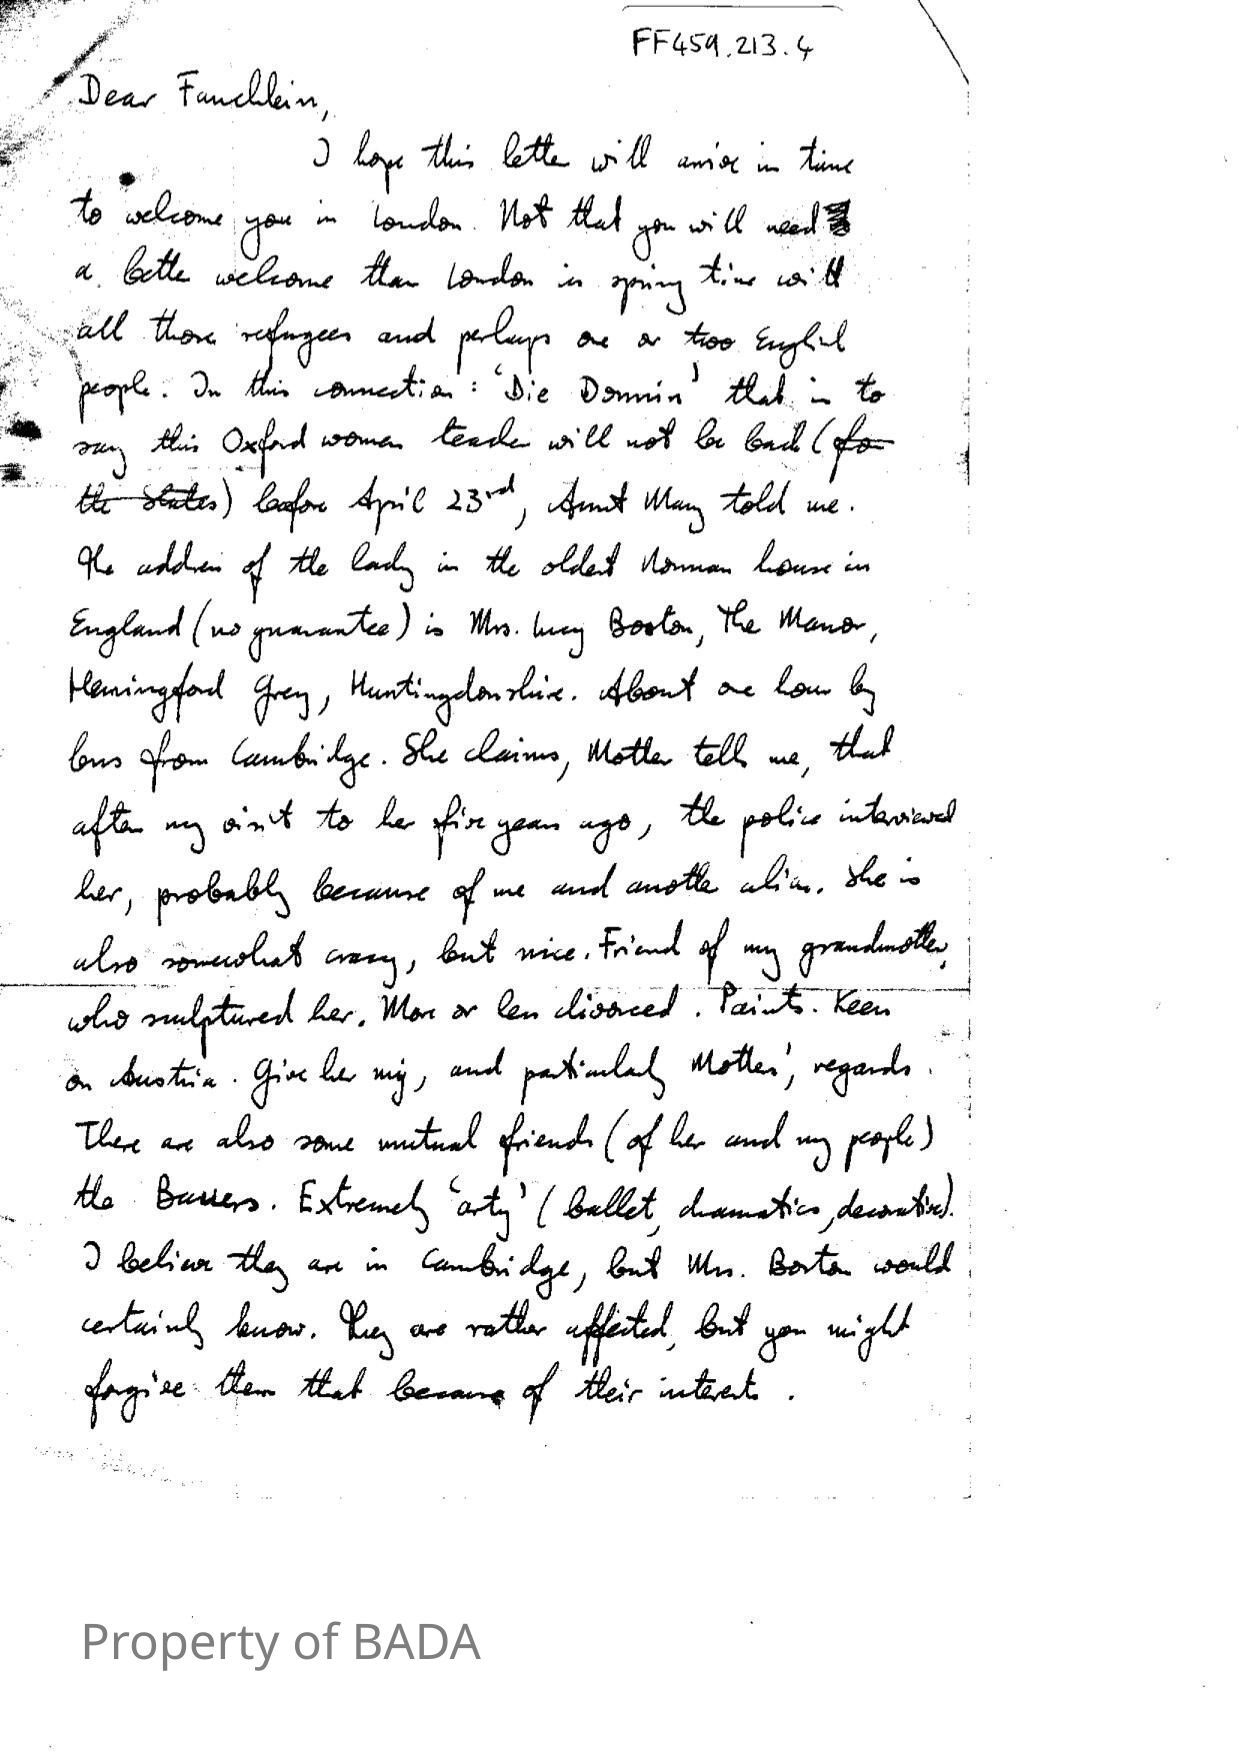 FF459.213.4
Dear Fauchlein,
I hope this letter will arrive in time
to welcome you in London. Not that you will need
a better welcome than London in spring time with
all those refugees and perhaps one or too English
people. In this connection: 'Die Donnin' that is to
say this Oxford women teacher will not be back (for
the States) before April 23rd, Aunt Mary told me.
The address of the lady in the oldest Norman house in
England (no guarantee) is Mrs. Lucy Boston, The Manor,
Hemingford Grey, Huntingdonshire. About one hour by
bus from Cambridge. She claims, Mother tells me, that
after my visit to her five years ago, the police interviewed
her, probably because of me and another alien. She is
also somewhat crazy, but nice. Friend of my grandmother,
who sculptured her. More or less divorced. Paints. Keen
on Austria. Give her my, and particularly Mother's, regards.
There are also some mutual friends (of her and my people)
the Extremely 'arty' (ballet, dramatics, decorative).
I believe they are in Cambridge, but Mrs. Boston would
certainly know. They are rather affected, but you might
forgive them that because of their interests.
Property of BADA